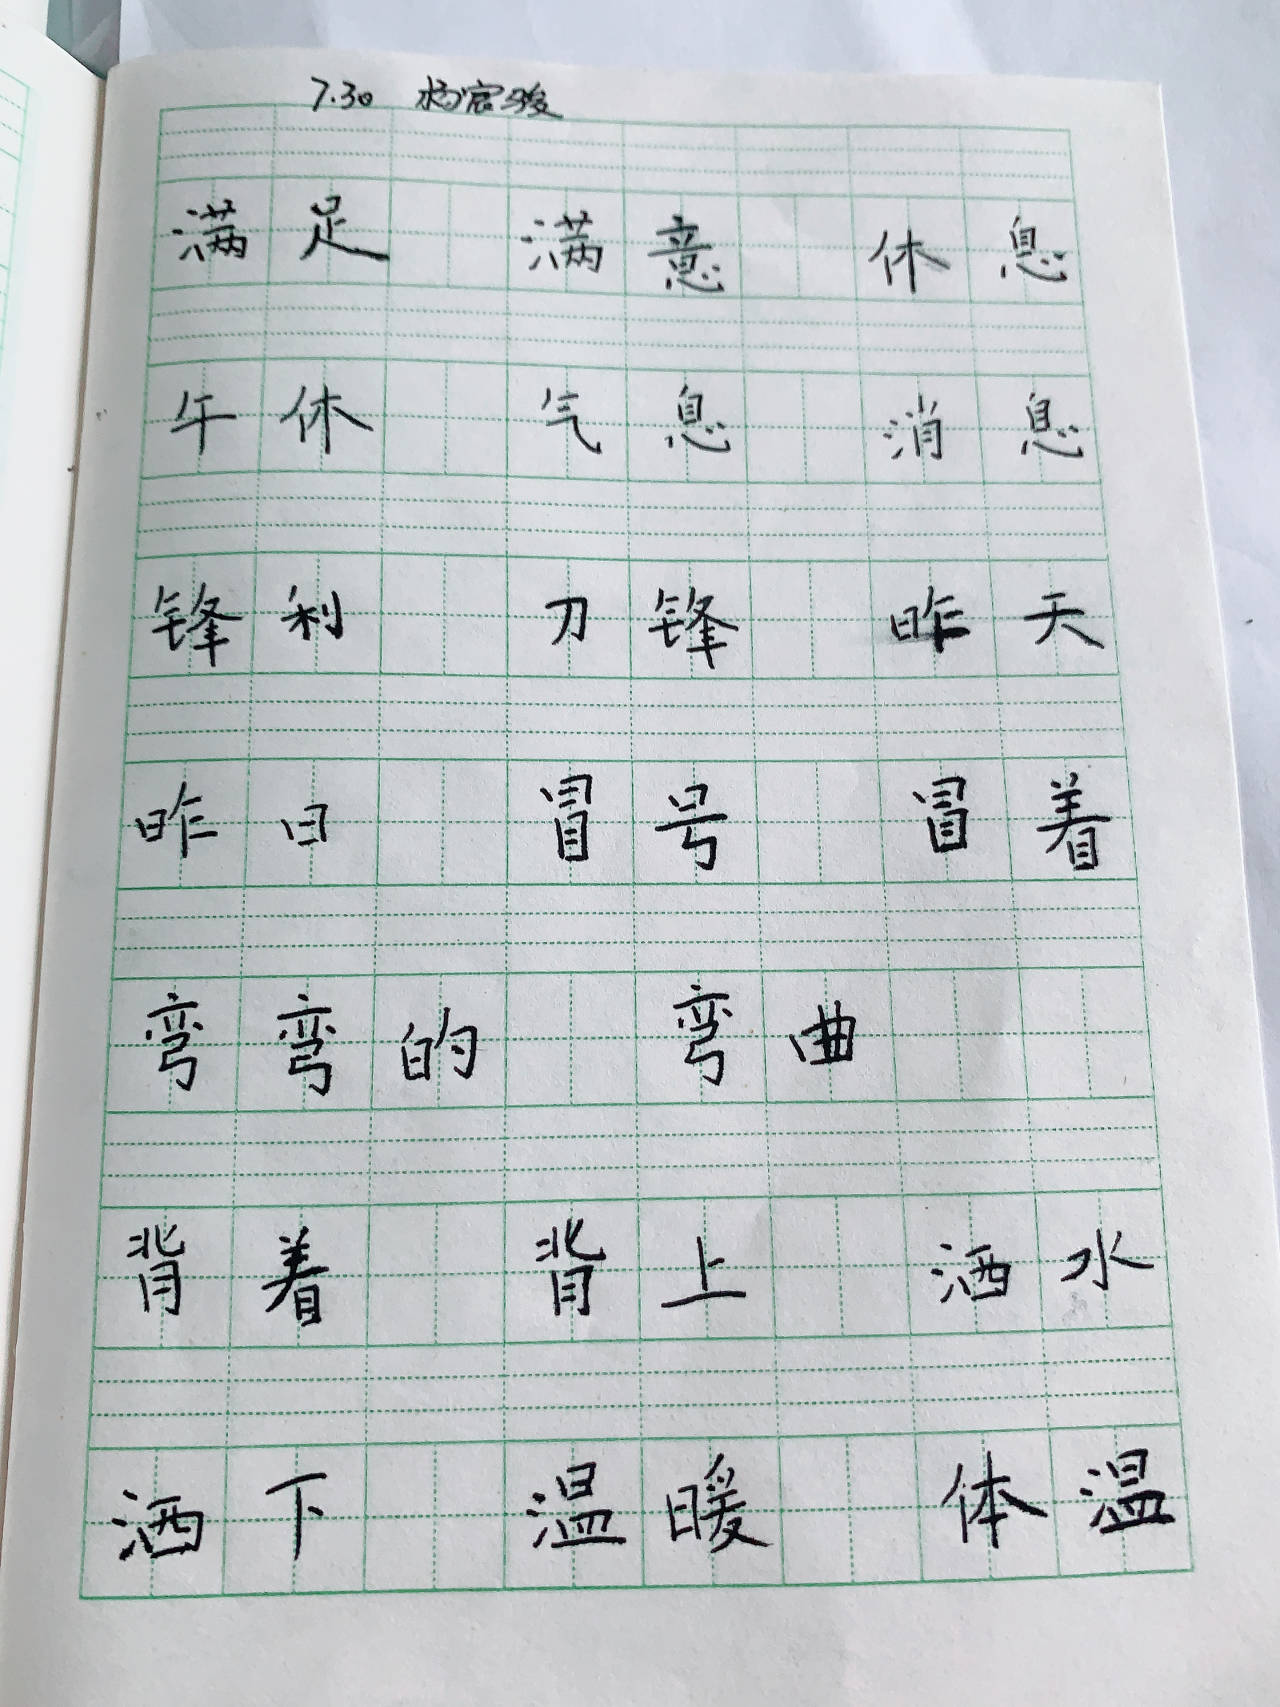 7.30 杨宸骏
满足 满意 休息
午休 气息 消息
锋利 刀锋 昨天
昨日 冒号 冒着
弯弯的 弯曲
背着 背上 洒水
洒下 温暖 体温